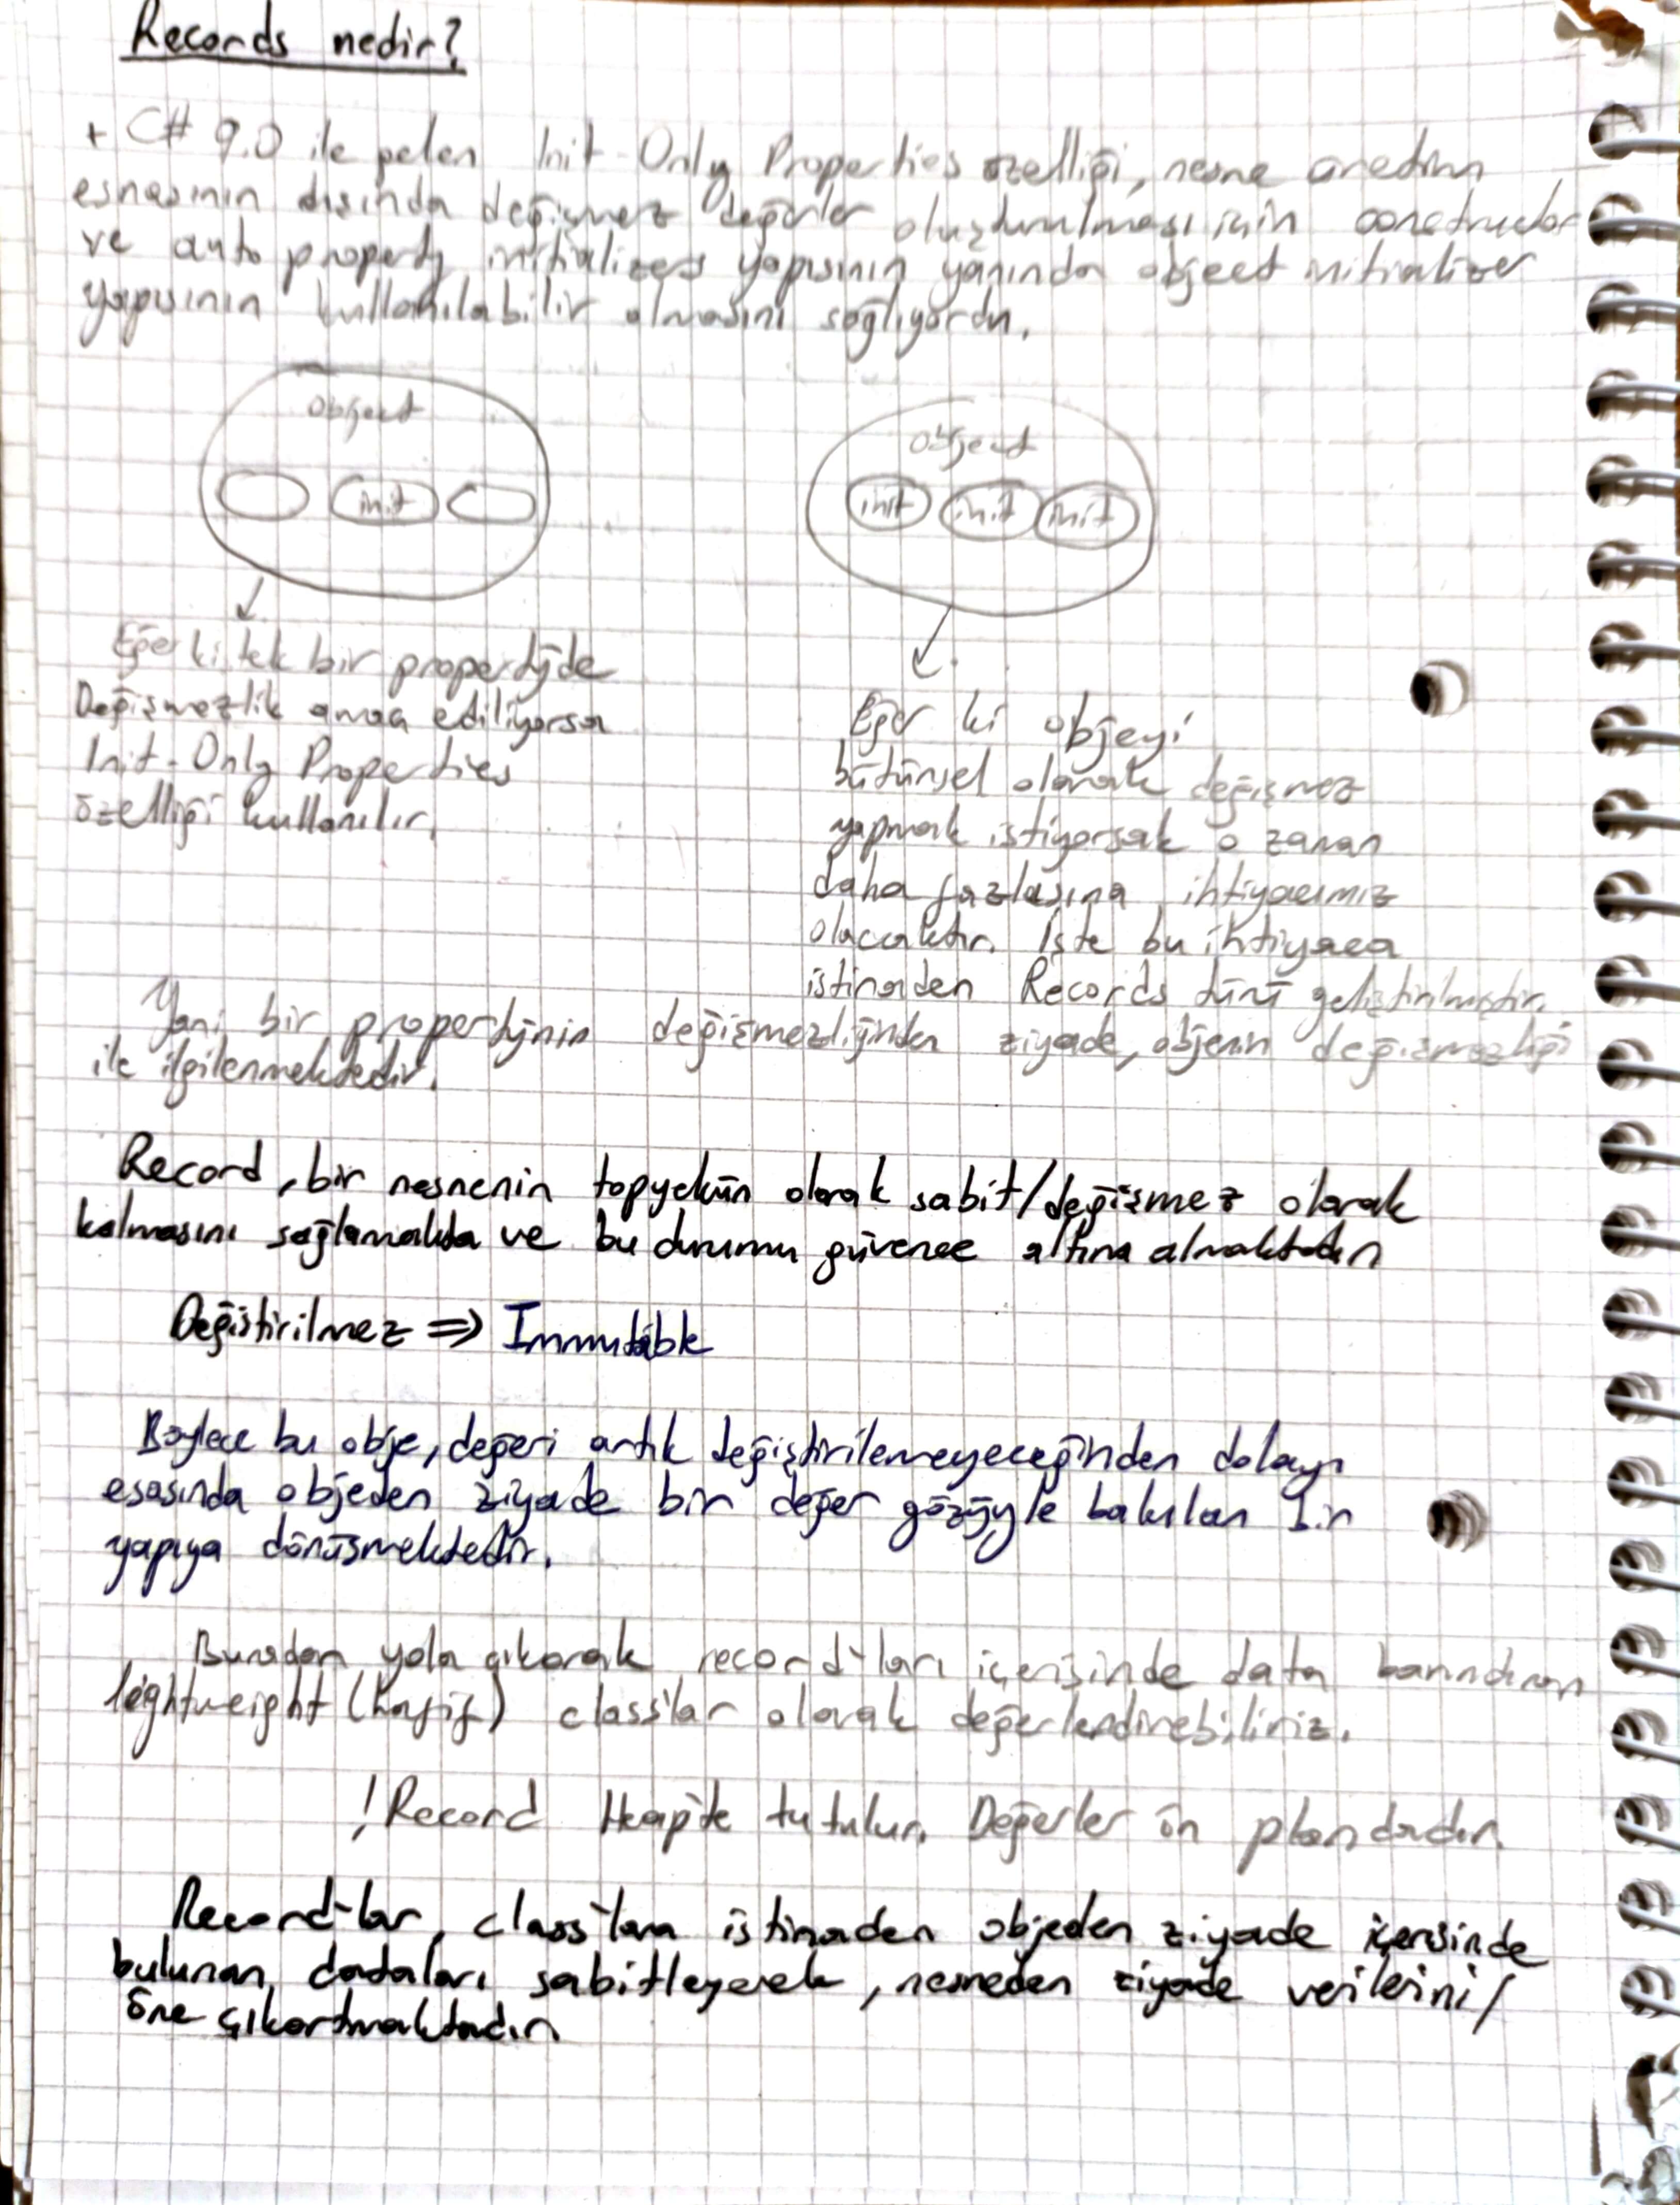 Records nedir?
+ C# 9.0 ile gelen Init-Only Properties özelliği, nesne üretimi
esnasının dışında değişmez değerler oluşturulması için constructor
ve auto property initializers yapısının yanında object initializer
yapısının kullanılabilir olmasını sağlıyordu.
Object
init
Object
init init init
Eğer ki tek bir propertyde
Değişmezlik amaç ediliyorsa
Init-Only Properties
özelliği kullanılır.
Eğer ki objeyi
bütünsel olarak değişmez
yapmak istiyorsak o zaman
daha fazlasına ihtiyacımız
olacaktır. İşte bu ihtiyaca
istinaden Records türü geliştirilmiştir.
Yani bir propertynin değişmezliğinden ziyade, objenin değişmezliği
ile ilgilenmektedir.
Record, bir nesnenin topyekün olarak sabit/değişmez olarak
kalmasını sağlamakta ve bu durumu güvence altına almaktadır
Değiştirilmez => Immutable
Böylece bu obje, değeri artık değiştirilemeyeceğinden dolayı
esasında objeden ziyade bir değer gözüyle bakılan bir
yapıya dönüşmektedir.
Buradan yola çıkarak record'ları içerisinde data barındıran
lightweight (hafif) class'lar olarak değerlendirebiliriz.
! Record Heap'te tutulur. Değerler ön plandadır.
Record'lar, class'lara istinaden objeden ziyade içerisinde
bulunan dataları sabitleyerek, nesneden ziyade verilerini/
öne çıkartmaktadır